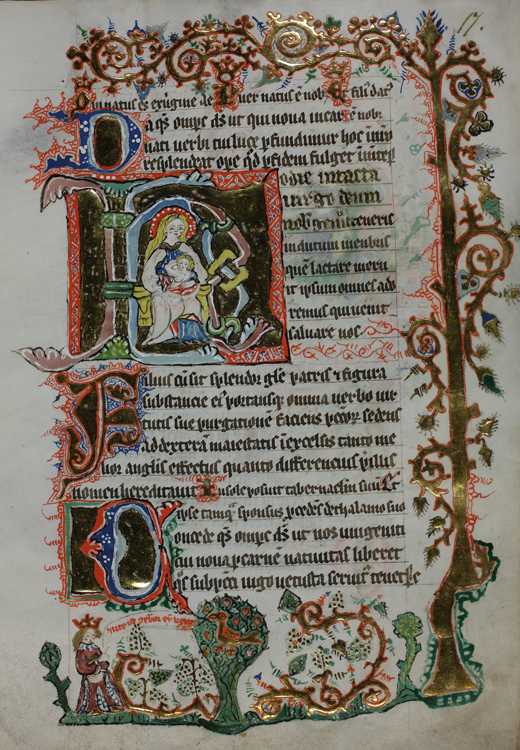 17
natus ē nob
Da q̄s om̄ps ds ut qui noua
nati verbi tui luce pfundimur hoc in
resplendeat ope qd p fidem fulget in
Hodie intacta
uirgo deum
nob genuit teneris
indutum menbris
quē lactare meru
it ipsum omnes ado
remus qui uenit
saluare nos
Filius cū sit splendor gle patris ⁊ figura
substancie eiꝰ portansq; omnia uerbo uir
tutis sue purgationē faciens pctoꝝ sedens
ad dexterā maiestatis ī excelsis tanto me
lior anglis effectus quanto differencius p illis
nomen hereditauit In sole posuit tabernaclm suū Et
ipse tamq̄ sponsus pcedens de thalamo suo
Concede q̄s om̄ps ds ut nos unigeniti
tui noua p carnē natiuitas liberet
qs sub pcti iugo vetusta seruitꝰ tenet